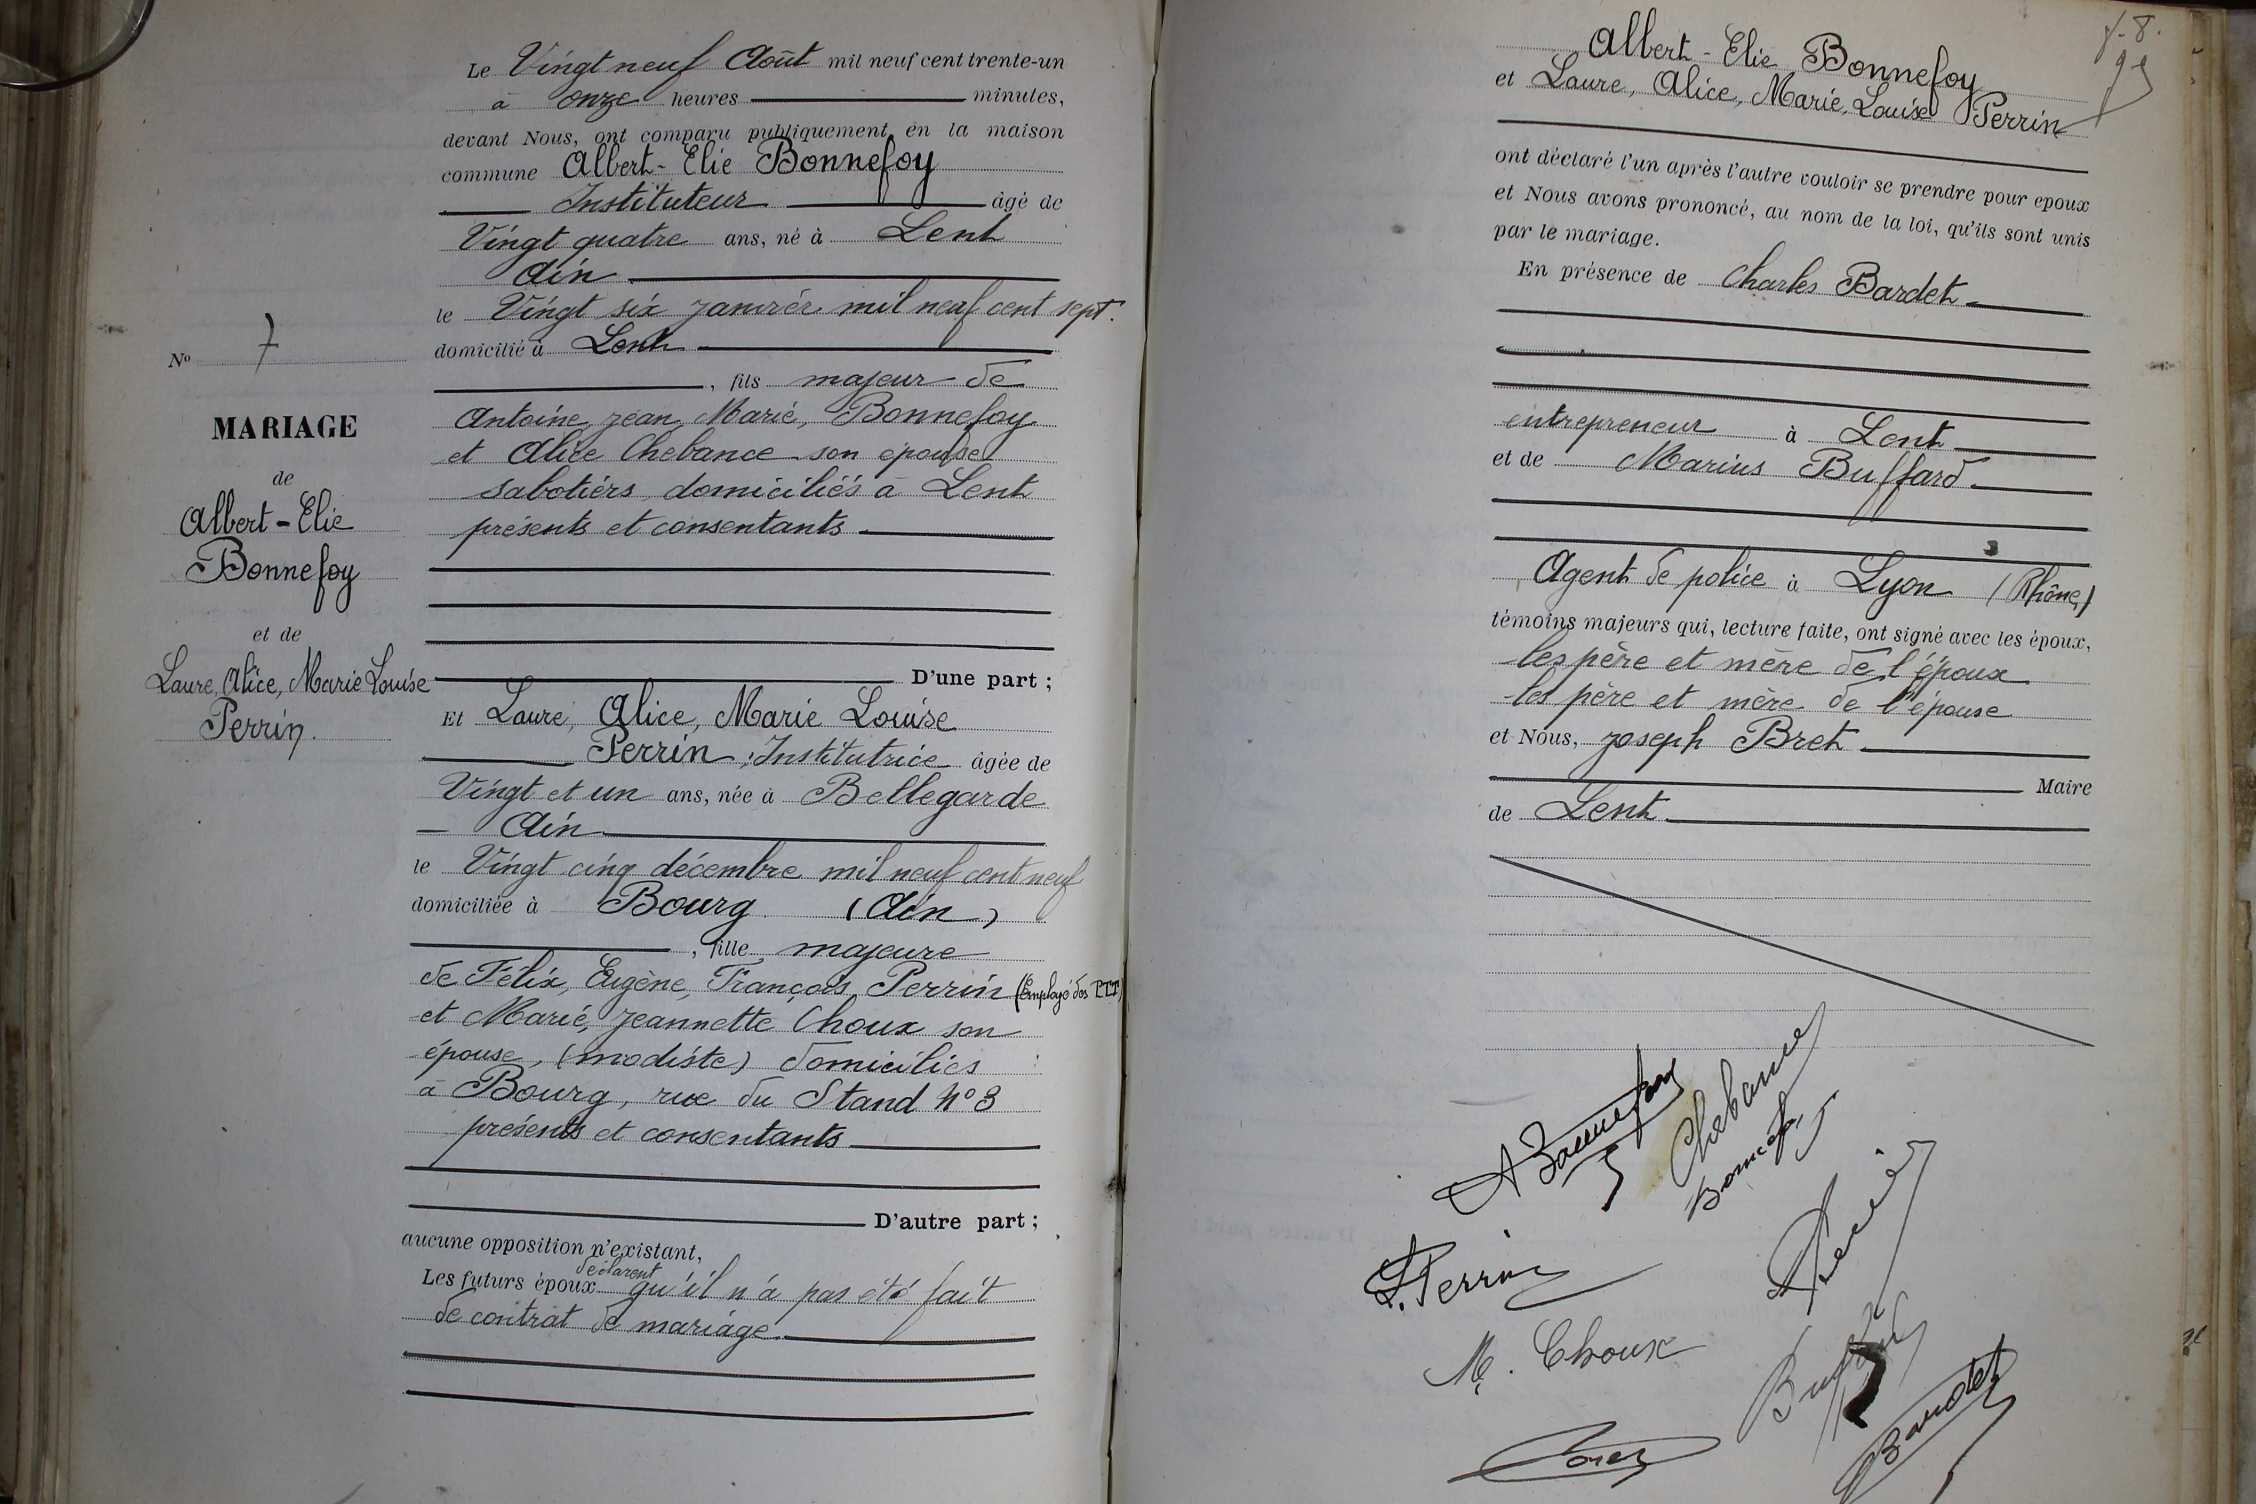 Le Vingt neuf Août mil neuf cent trente-un
à onze heures minutes,
devant Nous, ont comparu publiquement en la maison
commune Albert-Elie Bonnefoy
Instituteur âgé de
Vingt quatre ans, né à Lent
Ain
le Vingt six janvier mil neuf cent sept.
domicilié à Lent
, fils majeur de
Antoine, jean, Marie, Bonnefoy
et Alice Chebance son épouse
sabotiers domiciliés à Lent
présents et consentants
No 7
MARIAGE
de
Albert-Elie
Bonnefoy
et de
Laure, Alice, Marie Louise
Perrin.
D'une part ;
Et Laure, Alice, Marie Louise
Perrin, Institutrice âgée de
Vingt et un ans, née à Bellegarde
Ain
le Vingt cinq décembre mil neuf cent neuf
domiciliée à Bourg (Ain)
, fille majeure
de Félix, Eugène, François, Perrin (Employé des PTT)
et Marie, Jeannette Choux son
épouse, (modiste) domiciliés
à Bourg, rue du Stand No 3
présents et consentants
D'autre part ;
aucune opposition n'existant,
déclarent
Les futurs époux qu'il n'a pas été fait
de contrat de mariage.
Albert-Elie Bonnefoy
et Laure, Alice, Marie, Louise Perrin
ont déclaré l'un après l'autre vouloir se prendre pour epoux
et Nous avons prononcé, au nom de la loi, qu'ils sont unis
par le mariage.
En présence de Charles Bardet
entrepreneur à Lent
et de Marius Buffard
Agent de police à Lyon (Rhône)
témoins majeurs qui, lecture faite, ont signé avec les époux,
les père et mère de l'époux
les père et mère de l'épouse
et Nous, Joseph Bret
Maire
de Lent
A Bonnefoy
Chebance
L. Perrin
Perrin
M. Choux
Buffard
Bardet